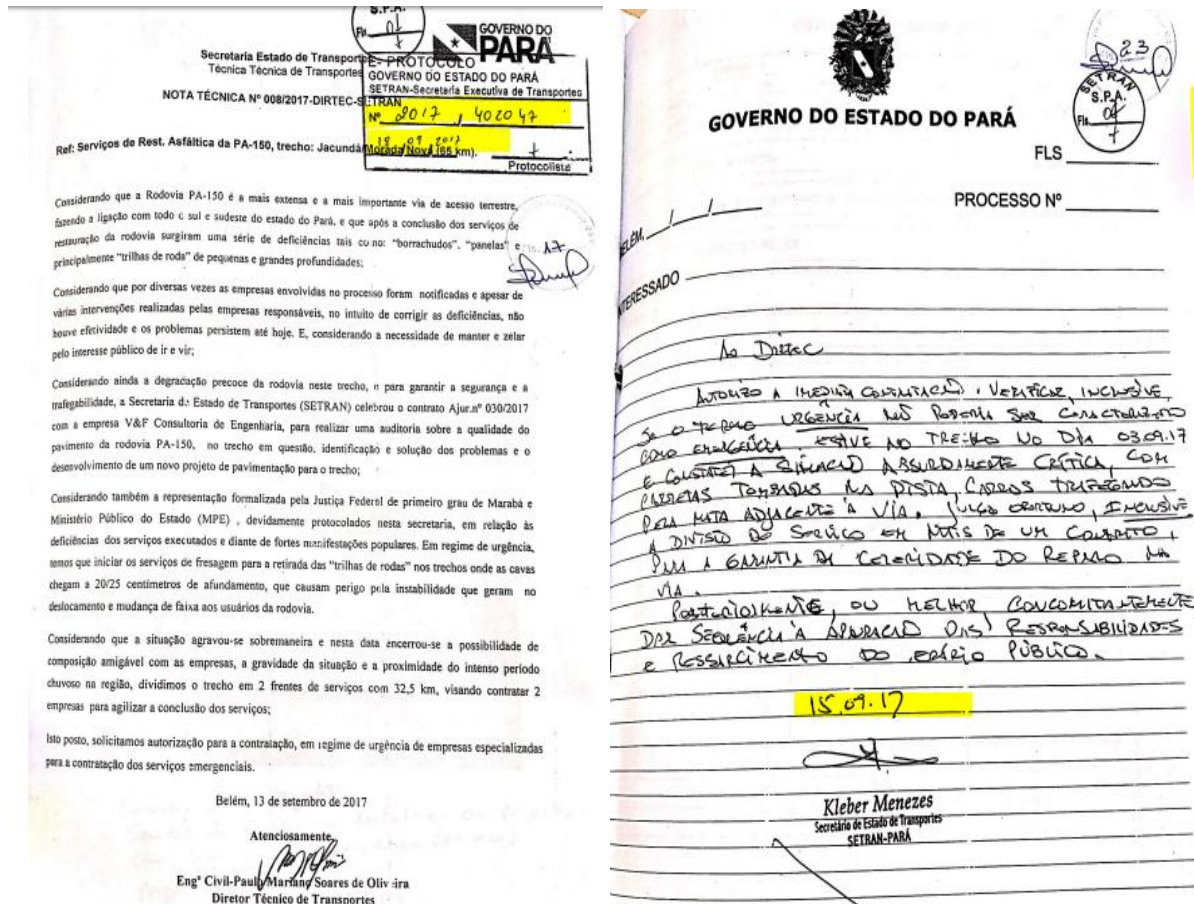 S.P.A.
Fls. 01
GOVERNO DO
PARÁ
Secretaria Estado de Transporte
Técnica Técnica de Transportes
NOTA TÉCNICA Nº 008/2017-DIRTEC-SETRAN
E- PROTOCOLO
GOVERNO DO ESTADO DO PARÁ
SETRAN-Secretaria Executiva de Transportes
Nº 2017 / 402047
18 09 2017
Protocolista
Ref: Serviços de Rest. Asfáltica da PA-150, trecho: Jacundá/Morada Nova (65 km).
Considerando que a Rodovia PA-150 é a mais extensa e a mais importante via de acesso terrestre,
fazendo a ligação com todo o sul e sudeste do estado do Pará, e que após a conclusão dos serviços de
restauração da rodovia surgiram uma série de deficiências tais como: "borrachudos", "panelas" e
principalmente "trilhas de roda" de pequenas e grandes profundidades;
17
Considerando que por diversas vezes as empresas envolvidas no processo foram notificadas e apesar de
várias intervenções realizadas pelas empresas responsáveis, no intuito de corrigir as deficiências, não
houve efetividade e os problemas persistem até hoje. E, considerando a necessidade de manter e zelar
pelo interesse público de ir e vir;
Considerando ainda a degradação precoce da rodovia neste trecho, e para garantir a segurança e a
trafegabilidade, a Secretaria de Estado de Transportes (SETRAN) celebrou o contrato Ajur.nº 030/2017
com a empresa V&F Consultoria de Engenharia, para realizar uma auditoria sobre a qualidade do
pavimento da rodovia PA-150, no trecho em questão, identificação e solução dos problemas e o
desenvolvimento de um novo projeto de pavimentação para o trecho;
Considerando também a representação formalizada pela Justiça Federal de primeiro grau de Marabá e
Ministério Público do Estado (MPE) , devidamente protocolados nesta secretaria, em relação às
deficiências dos serviços executados e diante de fortes manifestações populares. Em regime de urgência,
temos que iniciar os serviços de fresagem para a retirada das "trilhas de rodas" nos trechos onde as cavas
chegam a 20/25 centímetros de afundamento, que causam perigo pela instabilidade que geram no
deslocamento e mudança de faixa aos usuários da rodovia.
Considerando que a situação agravou-se sobremaneira e nesta data encerrou-se a possibilidade de
composição amigável com as empresas, a gravidade da situação e a proximidade do intenso período
chuvoso na região, dividimos o trecho em 2 frentes de serviços com 32,5 km, visando contratar 2
empresas para agilizar a conclusão dos serviços;
Isto posto, solicitamos autorização para a contratação, em regime de urgência de empresas especializadas
para a contratação dos serviços emergenciais.
Belém, 13 de setembro de 2017
Atenciosamente,
Engº Civil-Paulo Mariano Soares de Oliveira
Diretor Técnico de Transportes
23
SETRAN
S.P.A.
Fls.
GOVERNO DO ESTADO DO PARÁ
FLS
PROCESSO Nº
BELÉM, / /
INTERESSADO
Ao Dirtec
AUTORIZO A IMEDIATA CONTRATAÇÃO. VERIFICAR, INCLUSIVE,
SE O TERMO URGÊNCIA NÃO PODERIA SER CARACTERIZADO
COMO EMERGÊNCIA. ESTIVE NO TRECHO NO DIA 03.09.17
E CONSTATEI A SITUAÇÃO ABSURDAMENTE CRÍTICA, COM
CARRETAS TOMBADAS NA PISTA, CARROS TRAFEGANDO
PELA MATA ADJACENTE À VIA. JULGO OPORTUNO, INCLUSIVE,
A DIVISÃO DO SERVIÇO EM MAIS DE UM CONTRATO,
PARA A GARANTIA DA CELERIDADE DO REPARO NA
VIA.
POSTERIORMENTE, OU MELHOR, CONCOMITANTEMENTE
DAR SEQUÊNCIA À APURAÇÃO DAS RESPONSABILIDADES
E RESSARCIMENTO DO ERÁRIO PÚBLICO.
15.09.17
Kleber Menezes
Secretário de Estado de Transportes
SETRAN-PARÁ